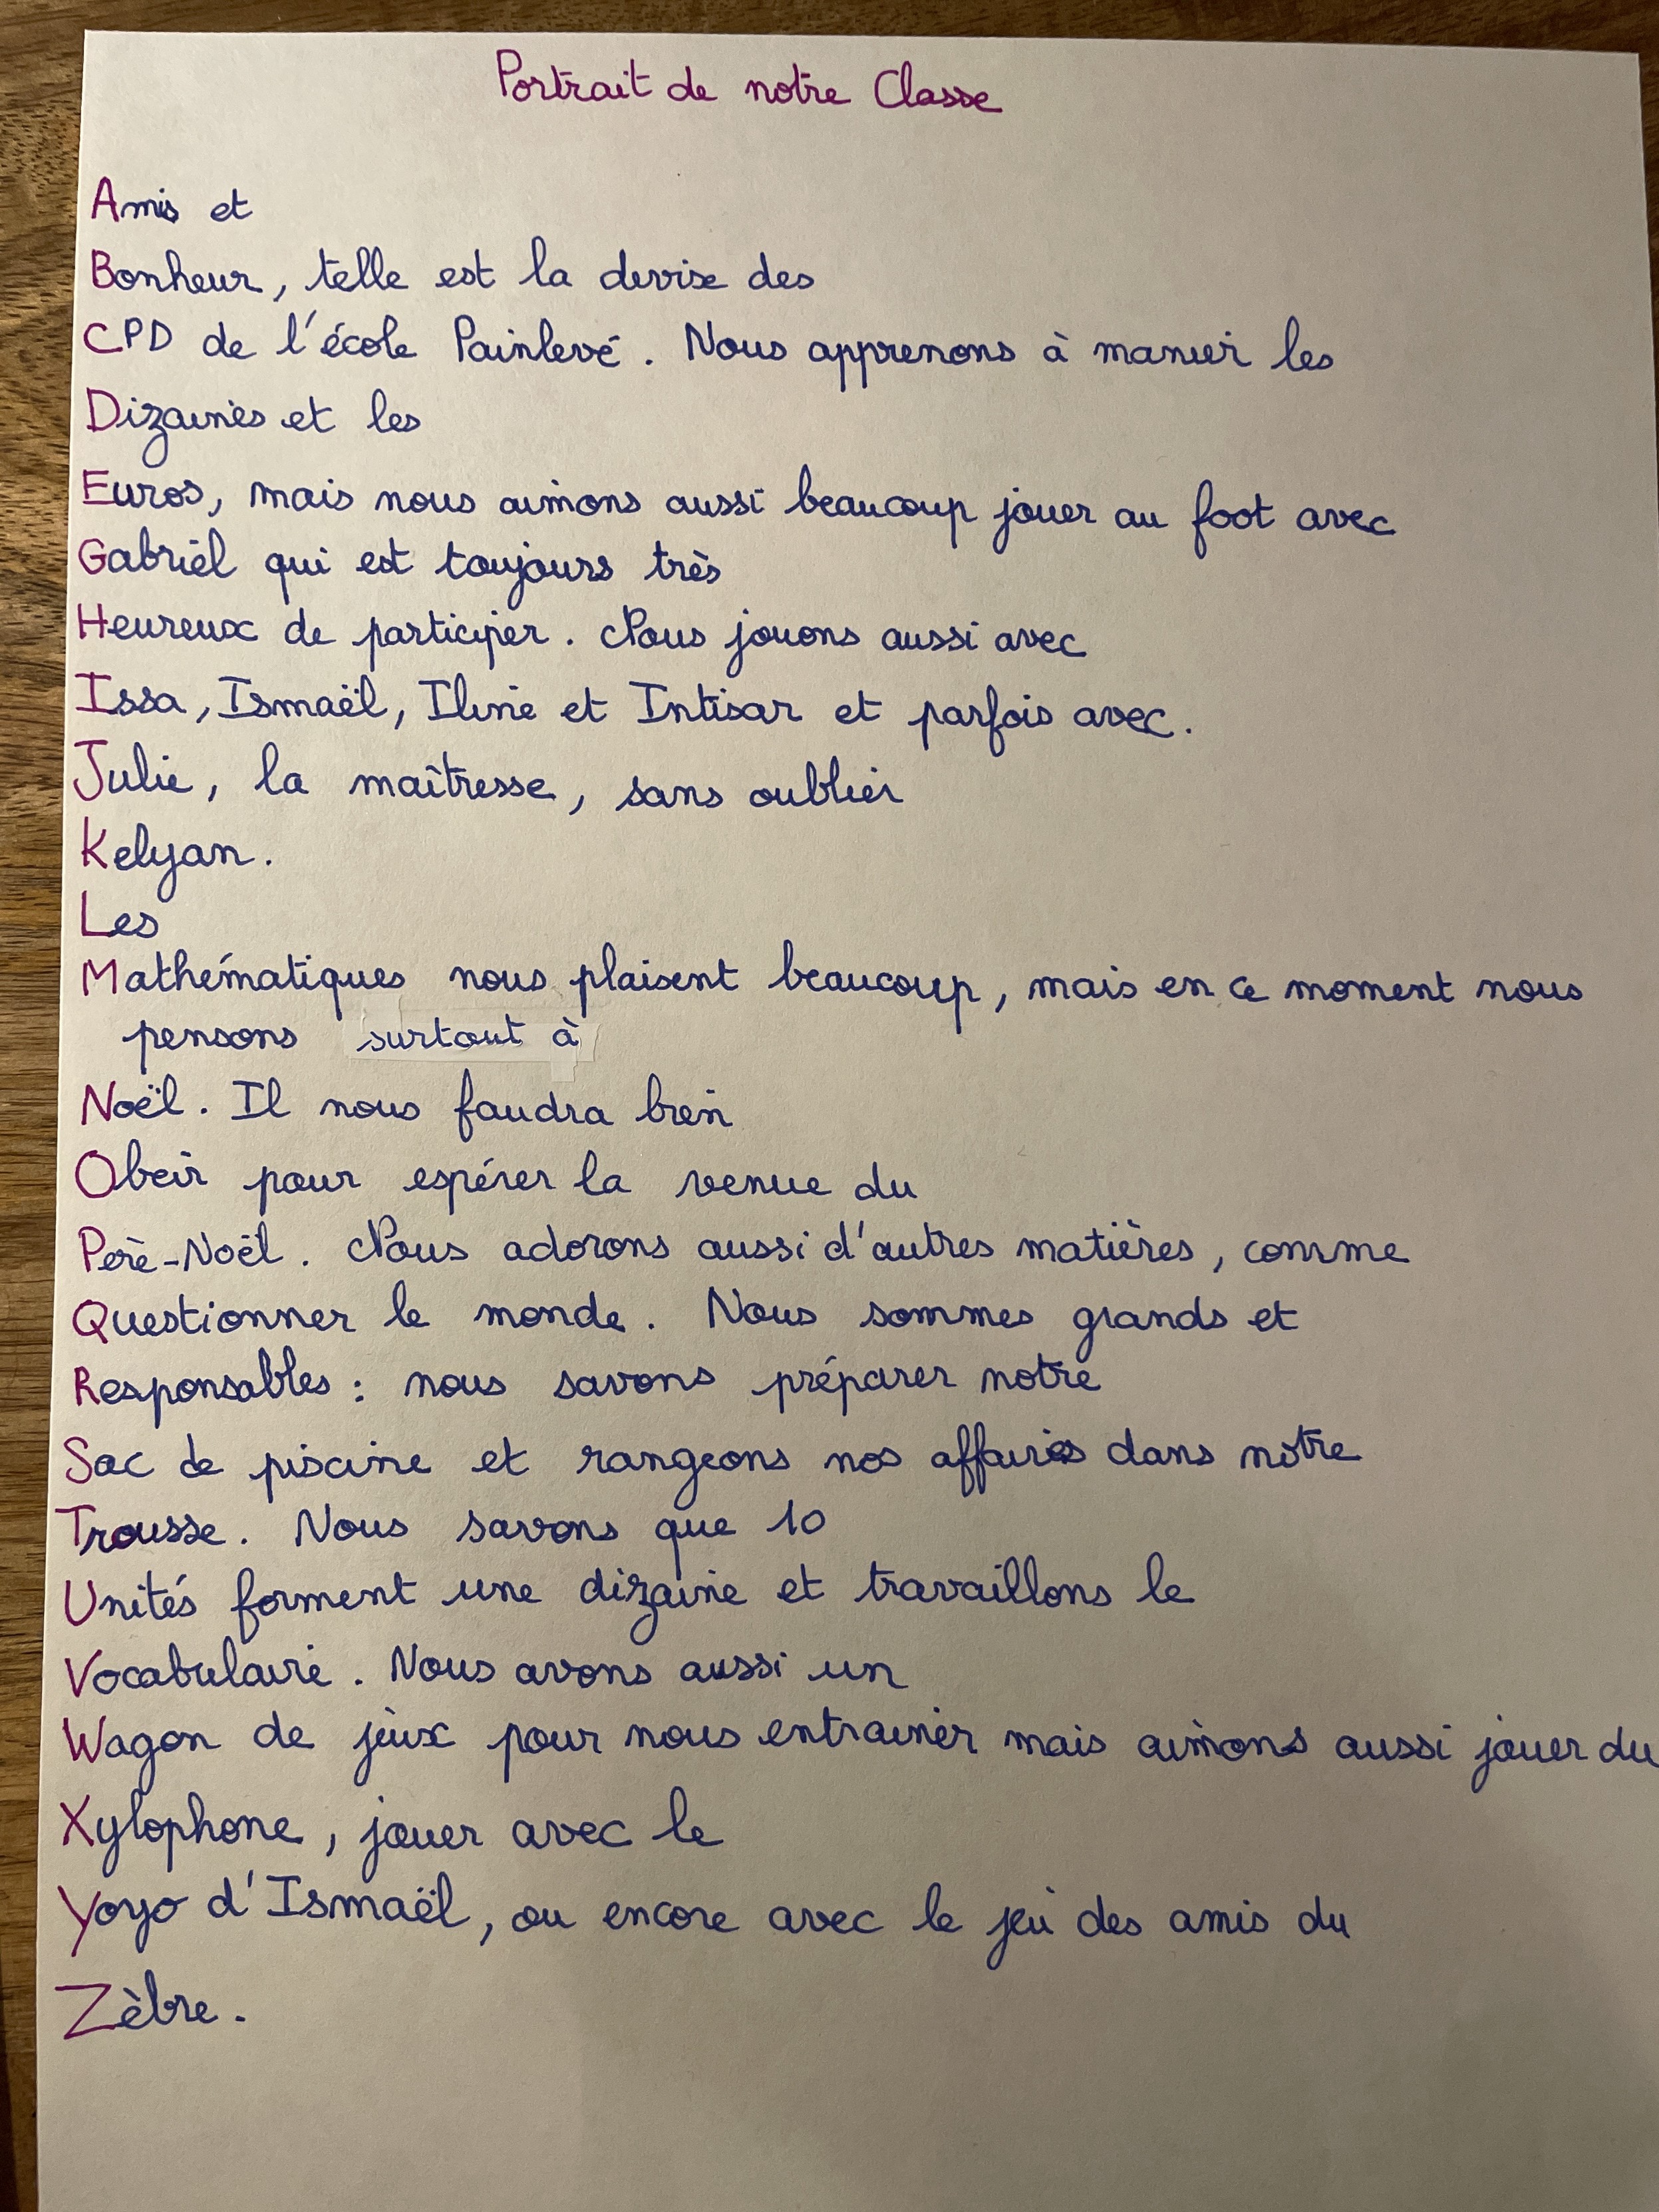 Portrait de notre Classe
Amis et
Bonheur, telle est la devise des
CPD de l'école Painlevé. Nous apprenons à manier les
Dizaines et les
Euros, mais nous aimons aussi beaucoup jouer au foot avec
Gabriel qui est toujours très
Heureux de participer. Nous jouons aussi avec
Issa, Ismaël, Iline et Intisar et parfois avec.
Julie, la maîtresse, sans oublier
Kelyan.
Les
Mathématiques nous plaisent beaucoup, mais en ce moment nous
pensons surtout à
Noël. Il nous faudra bien
Obeir pour espérer la venue du
Père-Noël. Nous adorons aussi d'autres matières, comme
Questionner le monde. Nous sommes grands et
Responsables : nous savons préparer notre
Sac de piscine et rangeons nos affaires dans notre
Trousse. Nous savons que 10
Unités forment une dizaine et travaillons le
Vocabulaire. Nous avons aussi un
Wagon de jeux pour nous entrainer mais aimons aussi jouer du
Xylophone, jouer avec le
Yoyo d'Ismaël, ou encore avec le jeu des amis du
Zèbre.